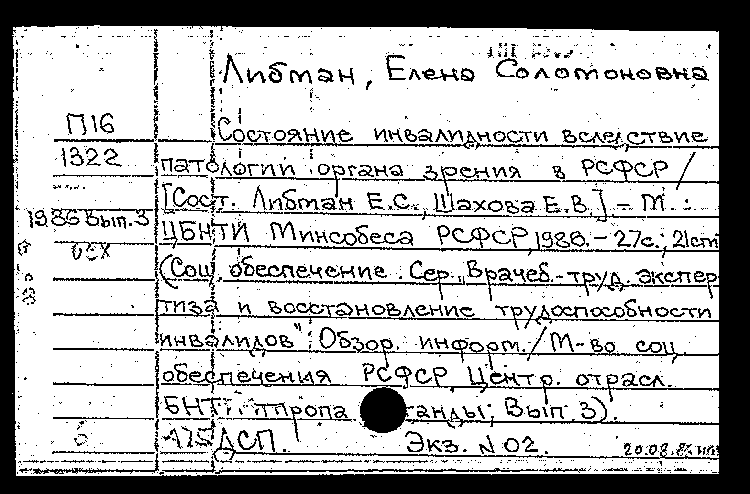 Либман, Елена Соломоновна
П16
1322
1986 Вып. 3
Состояние инвалидности вследствие
патологии органа зрения в РСФСР /
[Сост. Либман Е.С., Шахова Е.В.] – М.:
ЦБНТИ Минсобеса РСФСР, 1986. – 27с.; 21см
(Соц. обеспечение. Сер. „Врачеб.-труд. экспер
тиза и восстановление трудоспособности
инвалидов": Обзор. информ. / М-во соц.
обеспечения РСФСР, Центр. отрасл.
БНТИ пропаганды; Вып. 3).
ДСП. Экз. N 02.
20.08.86